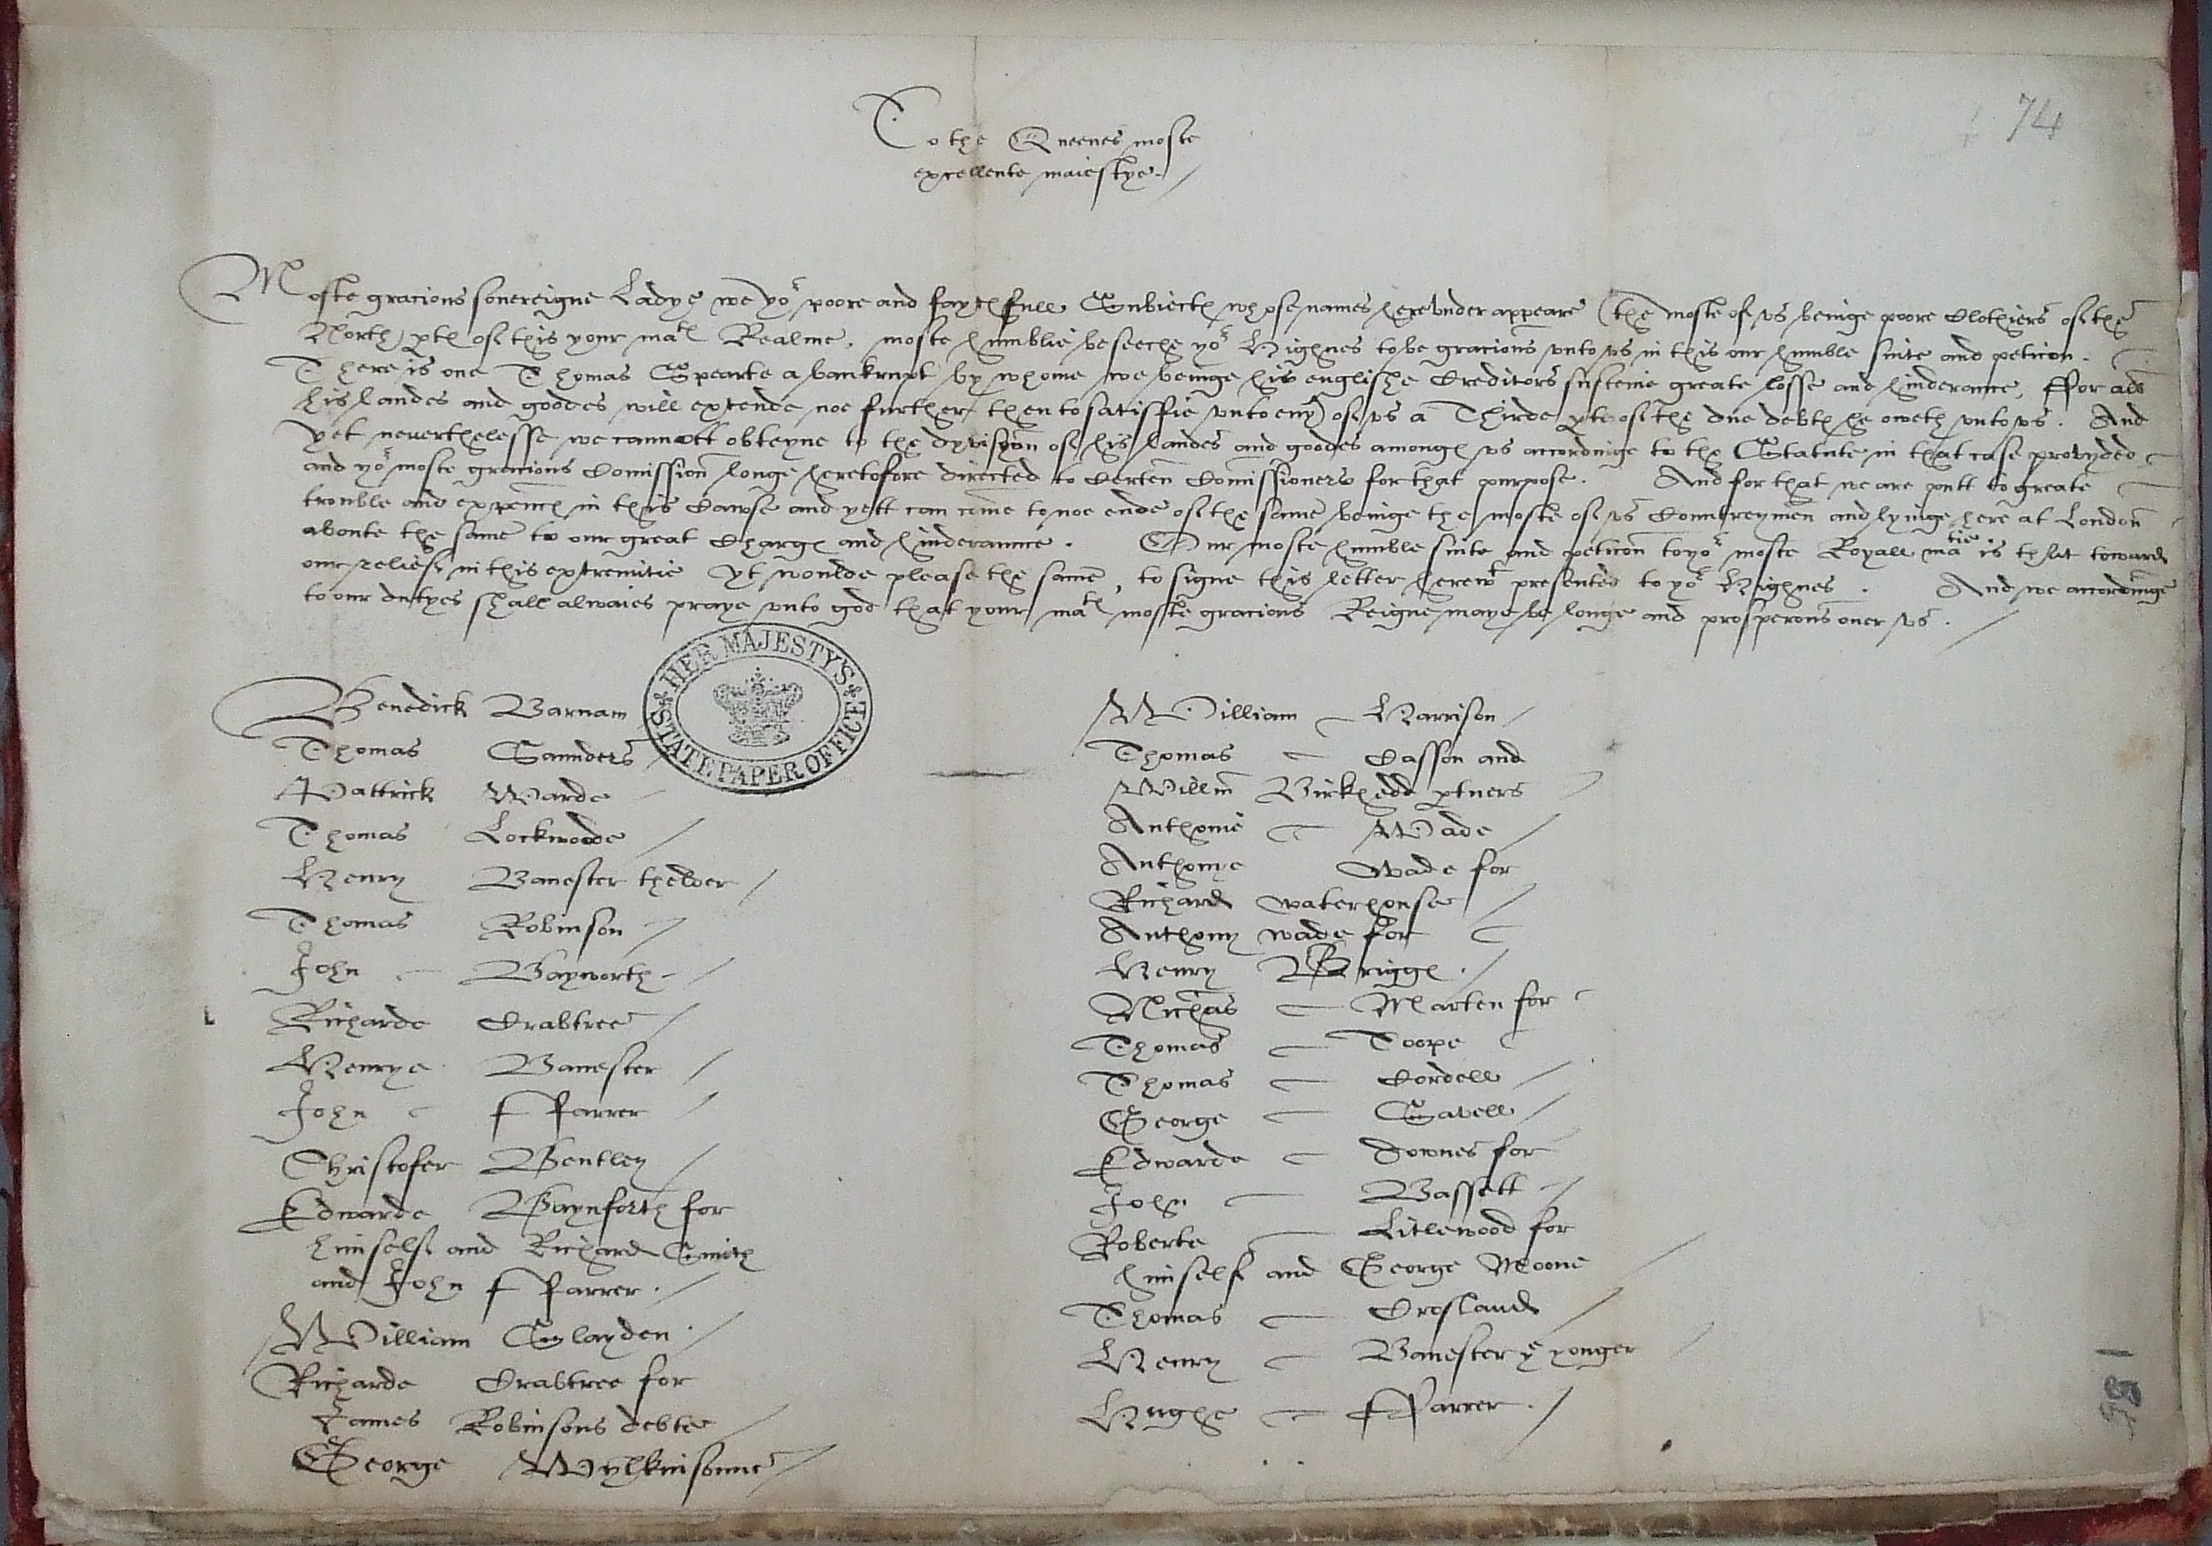 74
To the Queenes moste
excellente maiestye.
Moste gracious souereigne Ladye we yor poore and faythfull Subiects whose names herevnder appeare (the moste of vs beinge poore Clothiers of the
North pts of this your mats Realme, moste humblie beseeche yor Highnes to be gracious vnto vs in this our humble suite and peticon.
There is one Thomas Spearte a bankrupt by whome we beinge his englishe Creditors susteine greate losse and hinderance, ffor all
his landes and goodes will extende noe further then to satisfie vnto eny of vs a Thirde pte of the due debts he oweth vnto vs. And
yet neuerthelesse we cannott obteyne to the dyvisyon of his landes and goodes amongs vs accordinge to the Statute in that case provyded
and yor moste gracious Comission longe heretofore directed to Certen Comissioners for that purpose. And for that we are putt to greate
trouble and expencs in this Cawse and yett can come to noe ende of the same beinge the moste of vs Countreymen and lyinge here at London
aboute the same to our great Chargs and hinderaunce. Our moste humble suite and peticon to yor moste Royall matie is that towards
our relief in this extremitie yt woulde please the same, to signe this letter herewt presented to yor Highnes. And we accordinge
to our dutyes shall alwaies praye vnto god that your mats moste gracious Reigne maye be longe and prosperous ouer vs.
HER MAJESTY'S
STATE PAPER OFFICE
Benedick Barnam
Thomas Saunders
Pattrick Warde
Thomas Lockwoode
Henry Banester thelder
Thomas Robinson
John Bayworth
Richarde Crabtree
Henrye Banester
John ffarrer
Christofer Bentley
Edwarde Baynforth for
himself and Richard Smith
and John ffarrer.
William Glayden.
Richarde Crabtree for
James Robinsons debte
George Wylkinsonne
William Harrison
Thomas Casson and
Willm Birkhedd ptners
Anthonie Wade
Anthonye Wade for
Richard Waterhouse
Anthony Wade for
Henry Briggs.
Nichas Marten for
Thomas Toope
Thomas Cordell
George Savell
Edwarde Downes for
John Bassett
Roberte Litlewood for
himself and George Moone
Thomas Crosland
Henry Banester ye yonger
Hughe ffarrer.